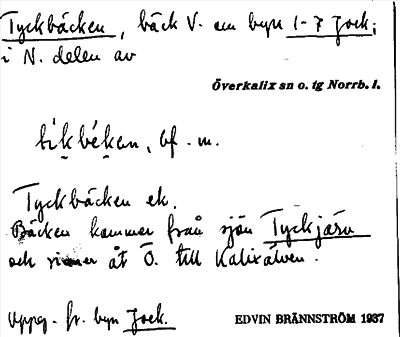 Tyckbäcken, bäck V. om byn 1-7 Jock;
i N. delen av
Överkalix sn o. tg Norrb. l.
bf. m.
Tyckbäcken ek.
Bäcken kommer från sjön Tyckjärv
och rinner åt Ö. till Kalixälven.
Uppg. fr. byn Jock.
EDVIN BRÄNNSTRÖM 1937